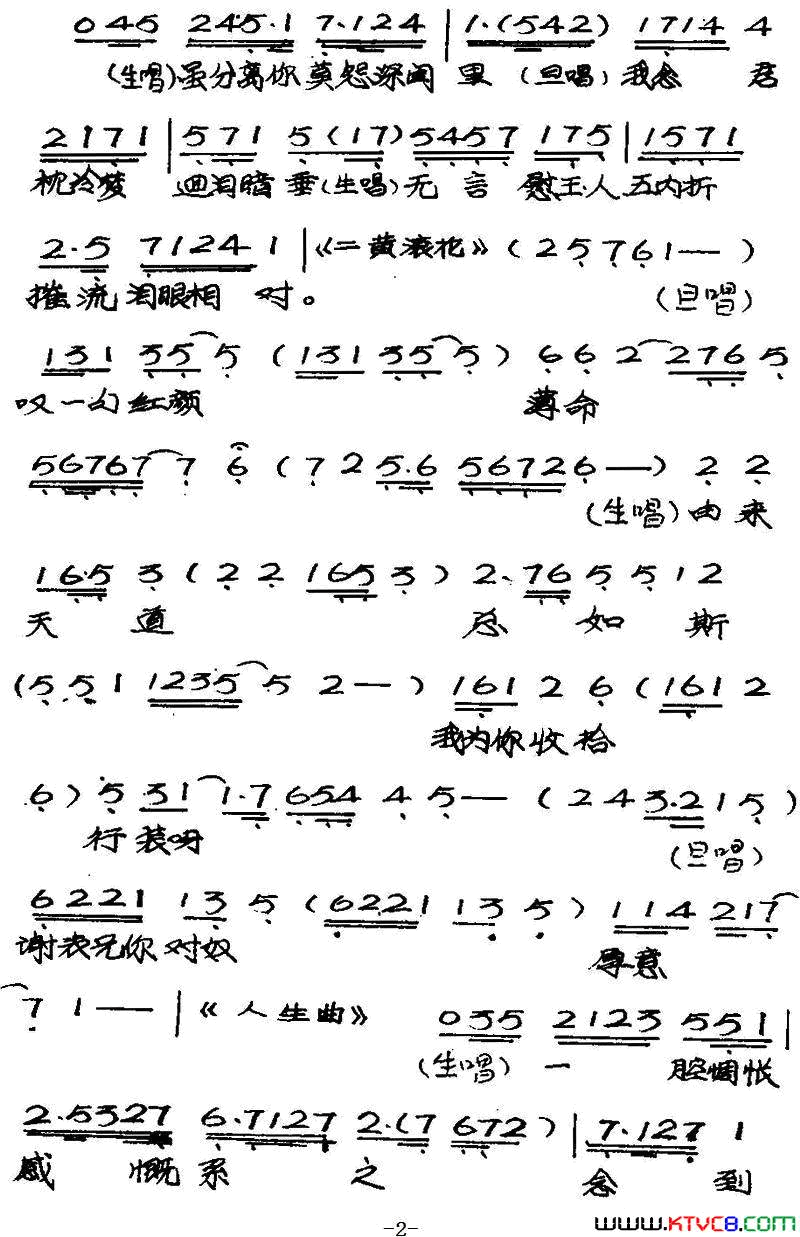 0 4 5 2 4 5 · 1 7 · 1 2 4 | 1 · ( 5 4 2 ) 1 7 1 4 4
(生唱) 虽分离你莫怨深闺里 (旦唱) 我念君
2 1 7 1 | 5 7 1 5 ( 1 7 ) 5 4 5 7 1 7 5 | 1 5 7 1
枕冷梦 迴泪暗垂 (生唱) 无言慰玉人五内折
2 · 5 7 1 2 4 1 | 《二黄滚花》 ( 2 5 7 6 1 — )
摧流泪眼相对。 (旦唱)
1 3 1 3 5 5 ( 1 3 1 3 5 5 ) 6 6 2 2 7 6 5
叹一句红颜 薄命
5 6 7 6 7 7 6 ( 7 2 5 · 6 5 6 7 2 6 — ) 2 2
(生唱) 由来
1 6 · 5 3 ( 2 2 1 6 5 3 ) 2 · 7 6 5 5 1 2
天道 总如斯
( 5 5 1 1 2 3 5 5 2 — ) 1 6 1 2 6 ( 1 6 1 2
我为你收拾
6 ) 5 3 1 1 · 7 6 5 4 4 5 — ( 2 4 3 · 2 1 5 )
行装呀 (旦唱)
6 2 2 1 1 3 5 ( 6 2 2 1 1 3 5 ) 1 1 4 2 1 7
谢表兄你对奴 厚意
7 1 —— | 《人生曲》 0 3 5 2 1 2 3 5 5 1 |
(生唱) 一腔惆怅
2 · 5 3 2 7 6 · 7 1 2 7 2 · ( 7 6 7 2 ) | 7 · 1 2 7 1
感慨系之 念到
-2-
www.KTVC8.com